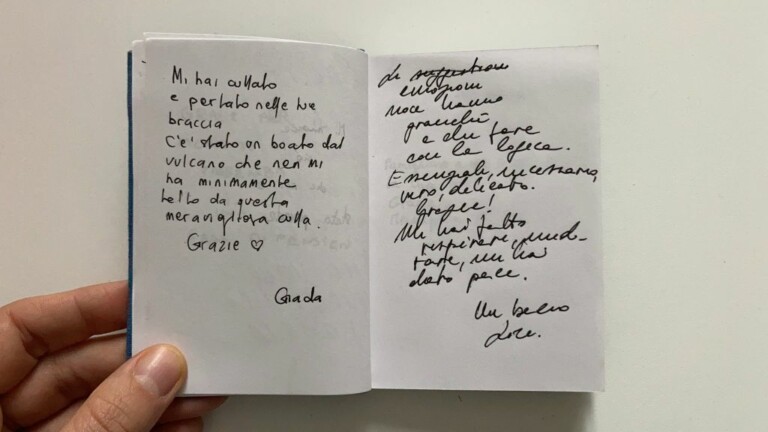 Mi hai cullato
e portato nelle tue
braccia
C'e' stato un boato dal
vulcano che non mi
ha minimamente
tolto da questa
meravigliosa culla.
Grazie ♡
Giada
Le suggestioni
emozioni
non hanno
a che fare
con la logica.
Essenziale, necessario,
vero, delicato.
Grazie!
Mi hai fatto
respirare,
mi hai
dato pace.
Un bacio